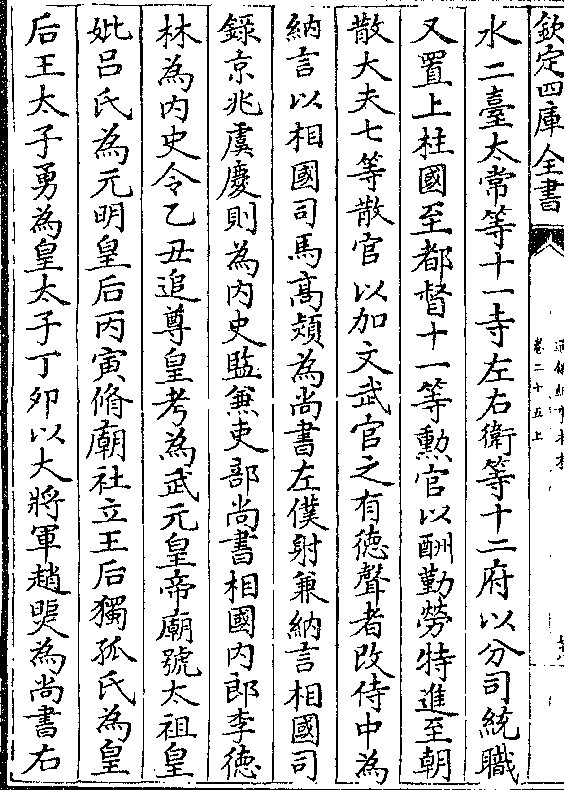 欽定四庫全書
通鑑紀事本末
卷二十五上
水二臺太常等十一寺左右衛等十二府以分司統職
又置上柱國至都督十一等勲官以酬勤勞特進至朝
散大夫七等散官以加文武官之有徳聲者改侍中為
納言以相國司馬高熲為尚書左僕射兼納言相國司
錄京兆虞慶則為内史監兼吏部尚書相國内郎李徳
林為内史令乙丑追尊皇考為武元皇帝廟號太祖皇
妣吕氏為元明皇后丙寅脩廟社立王后獨孤氏為皇
后王太子勇為皇太子丁卯以大將軍趙煚為尚書右